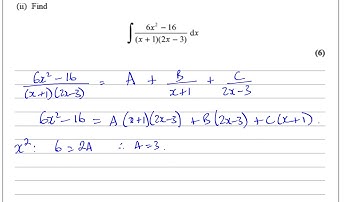 (ii) Find
∫ (6x² − 16)/((x + 1)(2x − 3)) dx
(6)
(6x² − 16)/((x+1)(2x−3)) = A + B/(x+1) + C/(2x−3)
6x² − 16 = A(x+1)(2x−3) + B(2x−3) + C(x+1).
x²: 6 = 2A ∴ A = 3.